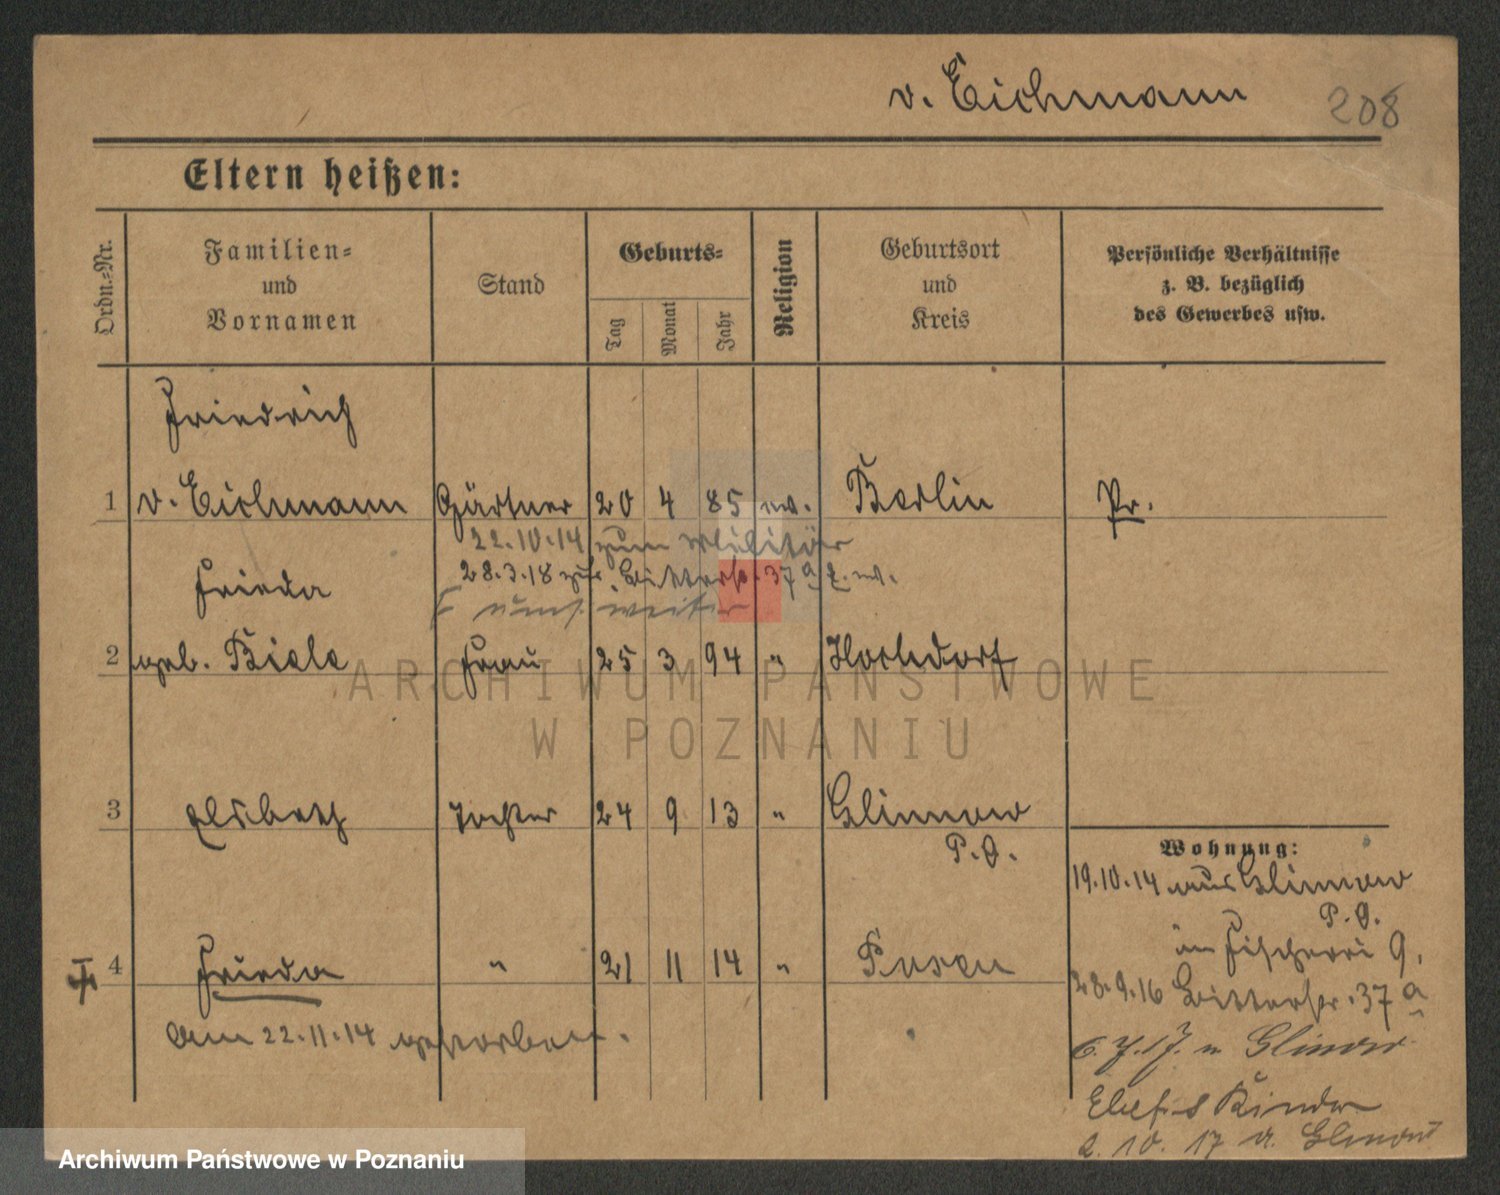 v. Eichmann 208
Eltern heißen:
Ordn.-Nr.
Familien-
und
Vornamen
Stand
Geburts-
Tag
Monat
Jahr
Religion
Geburtsort
und
Kreis
Persönliche Verhältnisse
z. B. bezüglich
des Gewerbes usw.
Friedrich
1 v. Eichmann Gärtner 20 4 85 ev. Berlin Pr.
22.10.14 zum Militär
28.3.18 37a
Frieda
weiter
2 geb. Biele Frau 25 3 94 " Hochdorf
3 Elsbeth Tochter 24 9 13 " Glinnow
P.O.
Wohnung:
19.10.14 aus Glinnow
P.O.
in Fischerei 9.
4 Frieda " 21 11 14 " Posen
28.9.16 Bitterstr. 37a
Am 22.11.14 gestorben.
6.7.17. n Glinow
Ehef. Kinder
2.10.17 Glinow
ARCHIWUM PAŃSTWOWE
W POZNANIU
Archiwum Państwowe w Poznaniu